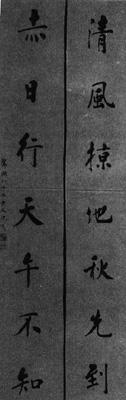 清風掠地秋先到
赤日行天午不知